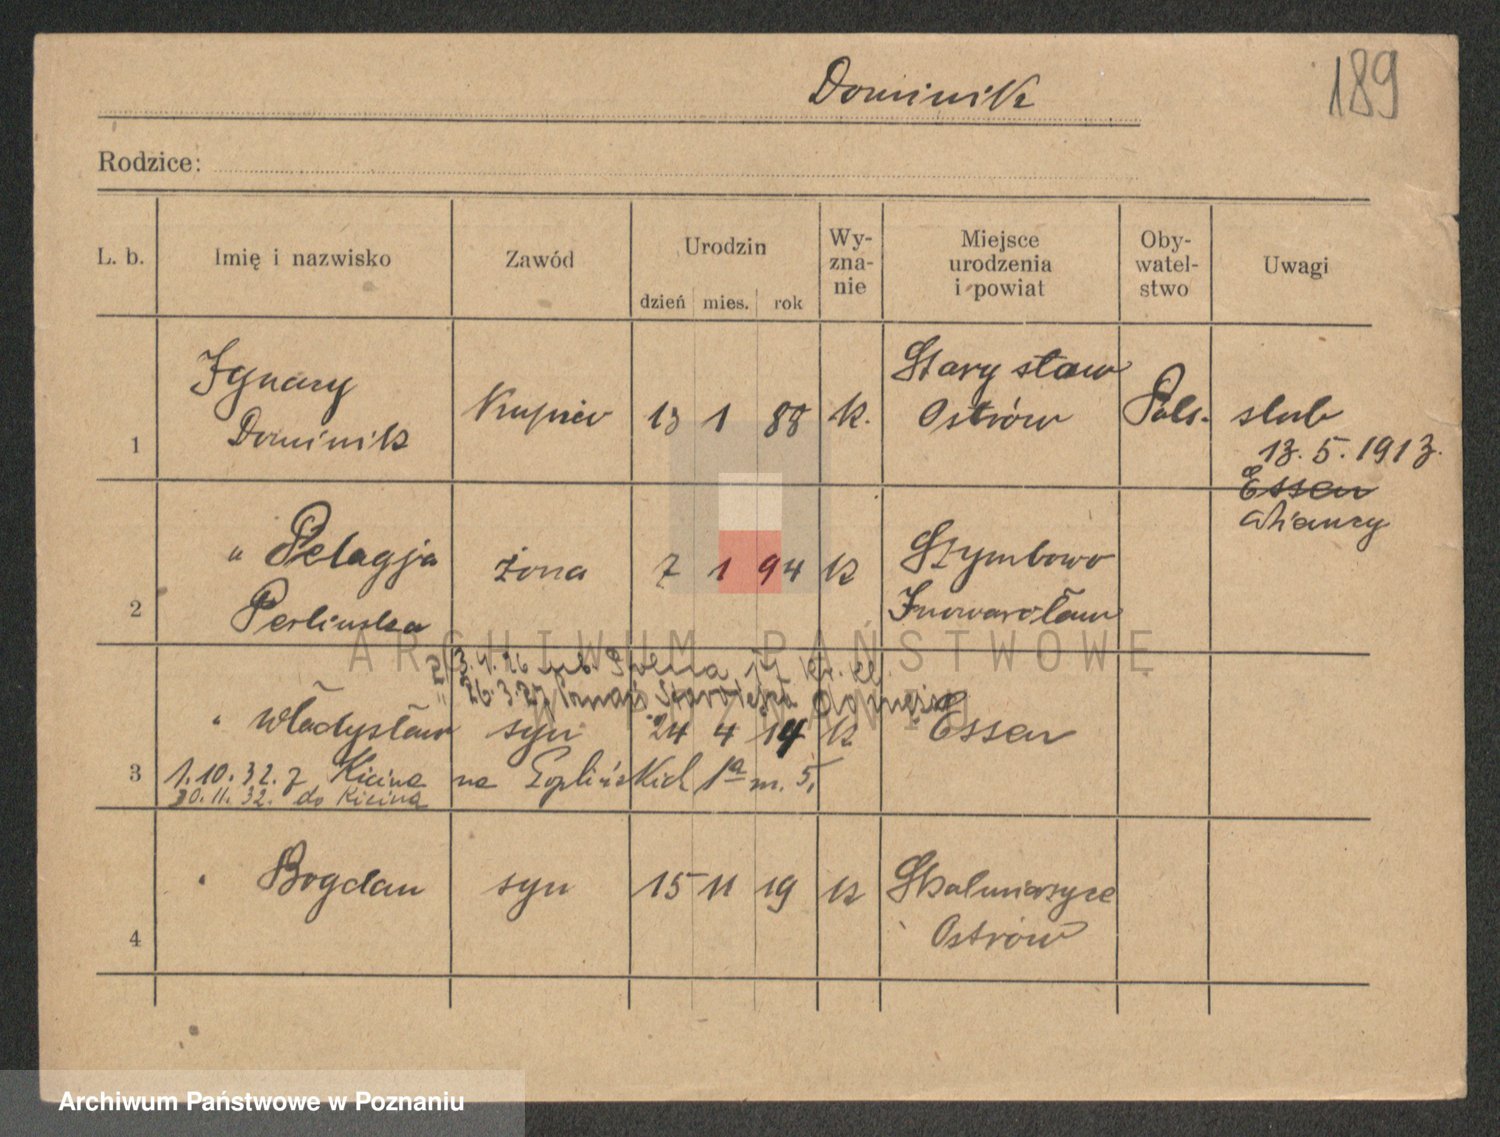 Dominik
189
Rodzice:
L. b.
Imię i nazwisko
Zawód
Urodzin
dzień
mies.
rok
Wy-
zna-
nie
Miejsce
urodzenia
i powiat
Oby-
watel-
stwo
Uwagi
1
Ignacy
Dominik
Kupiec
13 1 88
k.
Stary staw
Ostrów
Pols.
slub
13. 5. 1913.
Essen
2
" Pelagja
Perlinska
żona
7 1 94
k
Szymborze
Inowarosław
3. 4. 26
26. 3. 27
3
" Władysław
syn
24 4 14
k
Essen
1. 10. 32. z Kicina na
1a m. 5,
30. 11. 32. do Kicina
4
" Bogdan
syn
15 11 19
k
Skalmierzyce
Ostrów
ARCHIWUM PAŃSTWOWE
W POZNANIU
Archiwum Państwowe w Poznaniu